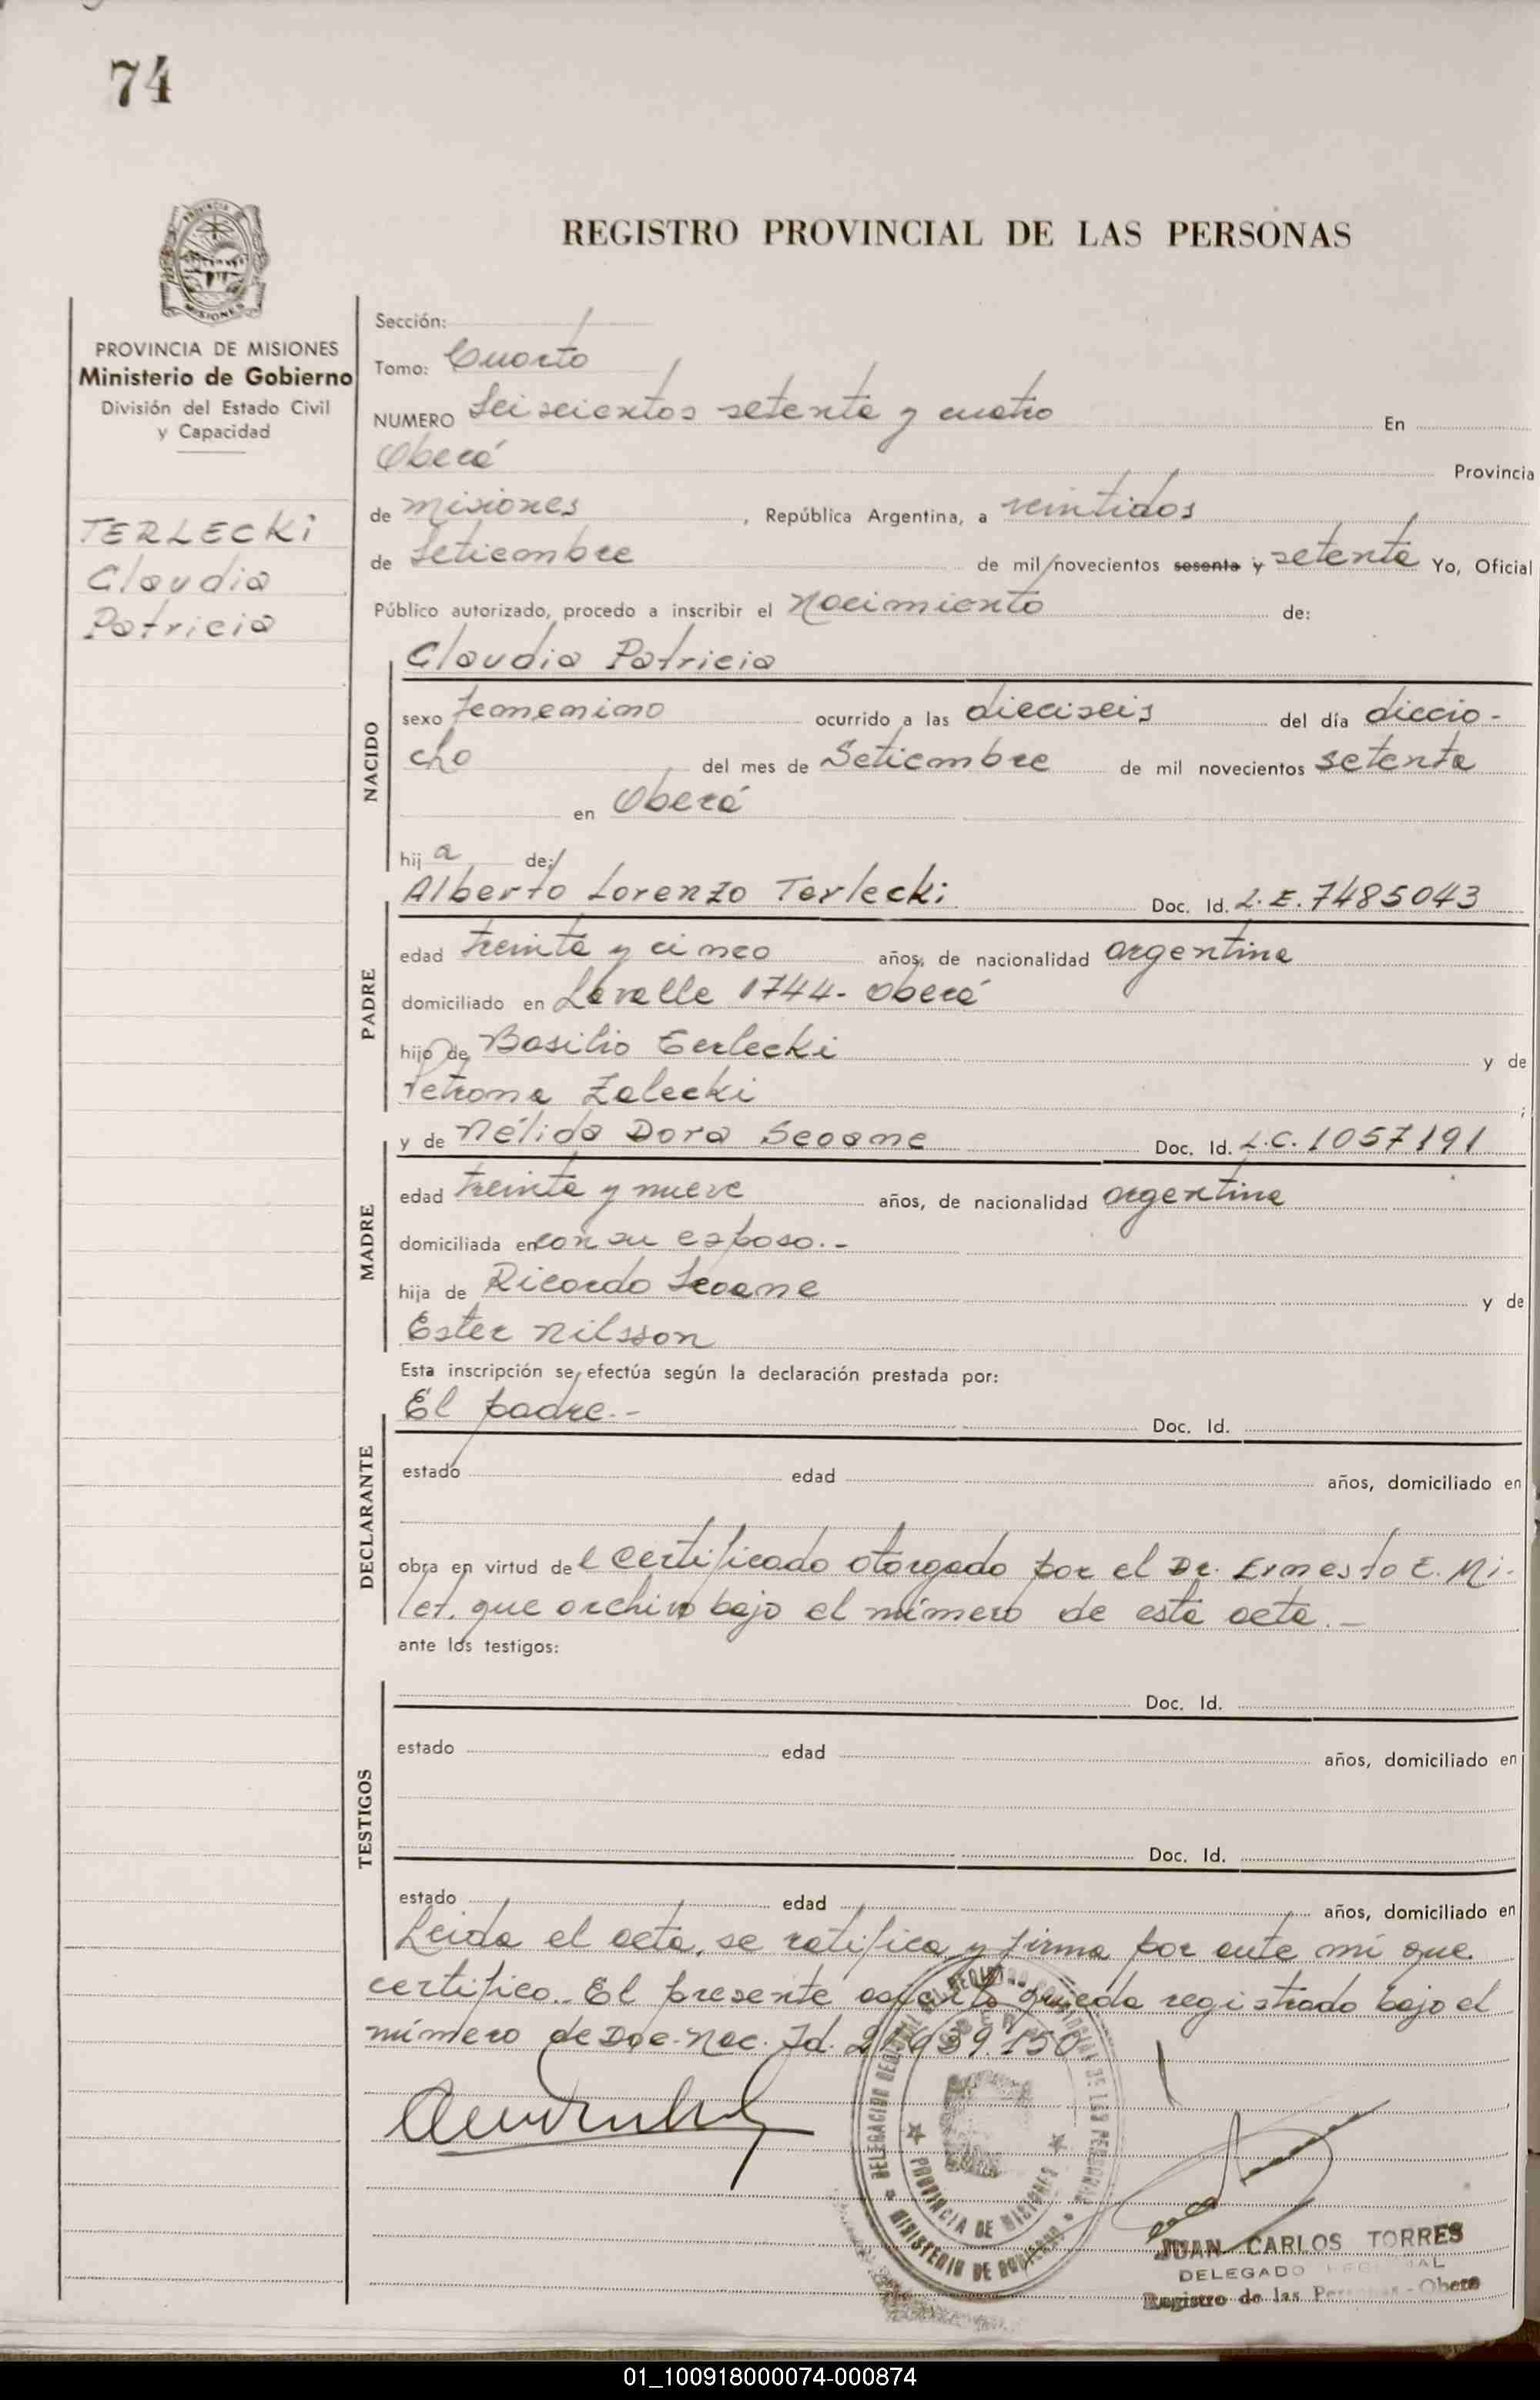 74
REGISTRO PROVINCIAL DE LAS PERSONAS
MISIONES
PROVINCIA DE MISIONES
Ministerio de Gobierno
División del Estado Civil
y Capacidad
TERLECKi
Claudia
Patricia
Sección:
Tomo: Cuarto
NUMERO Seiscientos setenta y cuatro En
Oberá Provincia
de misiones, República Argentina, a veintidos
de Setiembre de mil novecientos sesenta y setenta Yo, Oficial
Público autorizado, procedo a inscribir el Nacimiento de:
NACIDO
Claudia Patricia
sexo femenino ocurrido a las dieciseis del día diecio-
cho del mes de Setiembre de mil novecientos setenta
en Oberá
hija de:
PADRE
Alberto Lorenzo Terlecki Doc. Id. L.E. 7485043
edad treinta y cinco años, de nacionalidad argentina
domiciliado en Lavalle 1744- Oberá
hijo de Basilio Terlecki y de
Petrona Zalecki ;
MADRE
y de Nélida Dora Seoane Doc. Id. L.C. 1057191
edad treinta y nueve años, de nacionalidad argentina
domiciliada en con su esposo.-
hija de Ricardo Seoane y de
Ester Nilsson
Esta inscripción se efectúa según la declaración prestada por:
DECLARANTE
El padre.- Doc. Id.
estado edad años, domiciliado en
obra en virtud del certificado otorgado por el Dr. Ernesto E. Mi-
let. que archivo bajo el número de esta acta.-
ante los testigos:
TESTIGOS
Doc. Id.
estado edad años, domiciliado en
Doc. Id.
estado edad años, domiciliado en
Leida el acta, se ratifica y firma por ante mí que
certifico.. El presente asiento queda registrado bajo el
número de Doc. Nac. Id. 21939.150
DELEGACION REGISTRO PROVINCIAL DE LAS PERSONAS
PROVINCIA DE MISIONES
MINISTERIO DE GOBIERNO
JUAN CARLOS TORRES
DELEGADO
Registro de las - Obera
01_100918000074-000874